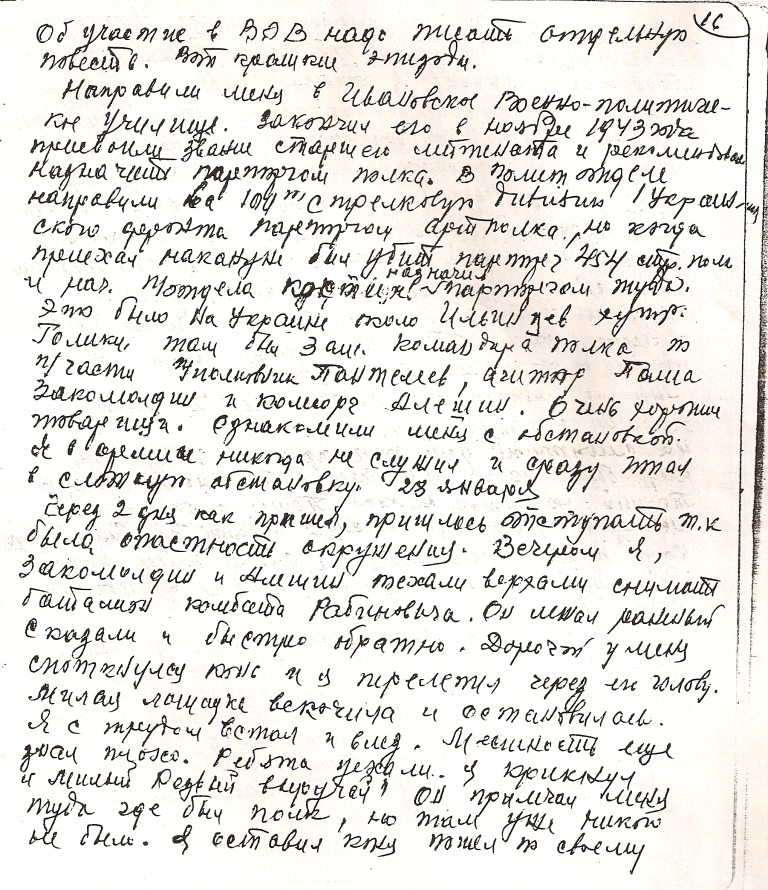 16
Об участие в ВОВ надо писать отдельную
повесть. Вот краткие эпизоды.
Направили меня в Ивановское Военно-политиче-
кое училище. Закончил его в ноябре 1943 года
присвоили звание старшего лейтената и рекомендовали
назначить парторгом полка. В политотделе
направили на 100ю стрелковую дивизию 1 Украин-
ского фронта парторгом артполка, но когда
приехал накануне был убит парторг 454 стр. полк
и нач. Потдела назначил парторгом туда.
Это было на Украине около Ильинцев хутр.
Полики, там был Зам. командира полка по
п/части п/полковник Пантелеев, агитатор Паша
Закомолдин и комсорг Алешин. Очень хорошие
товарищи. Ознакомили меня с обстановкой.
Я в армии никогда не служил и сразу попал
в сложную обстановку. 23 января
Через 2 дня как пришел, пришлось отступать т.к
была опастность окружения. Вечером я,
Закомолдин и Алешин поехали верхами снимать
баталион комбата Рабиновича. Он лежал раненый
Сказали и быстро обратно. Дорогой у меня
споткнулся конь и я перелетел через ее голову.
Милая лошадка вскочила и остановилась.
Я с трудом встал и влез. Местность еще
знал плохо. Ребята уехали. Я крикнул
и Милый Резвый выручай! Он примчал меня
туда где был полк, но там уже никого
не было. Я оставил коня пошел по своему